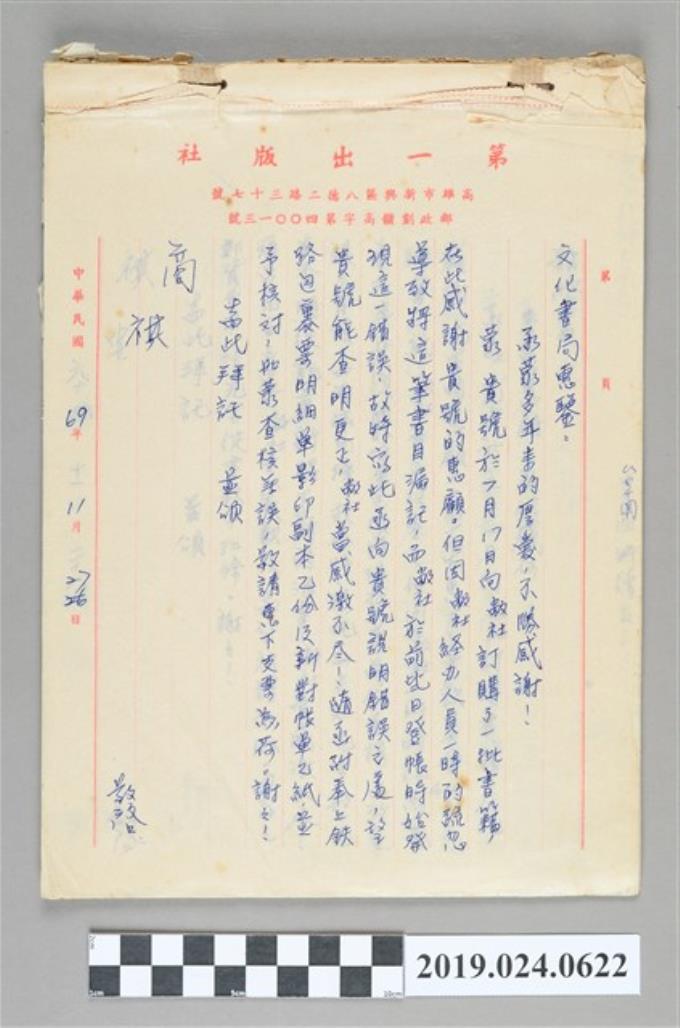 第一出版社
高雄市新興區八德二路三十七號
郵政劃撥高字第四〇〇一三號
第 頁
文化書局惠鑒：
承蒙多年來的厚愛，不勝感謝！
蒙 貴號於7月17日向敝社訂購了一批書籍，
在此感謝貴號的惠顧。但因敝社経办人員一時的疏忽
導致將這筆書目漏記，而敝社於前些日登帳時始發
現這一錯誤，故特寫此函向貴號說明錯誤之處，望
貴號能查明更正，敝社當感激不尽！隨函附奉上鉄
路包裹票明細單影印副本乙份及新對帳單乙紙，並
予核对！如蒙查核無誤，敬請惠下支票為荷。謝々！
耑此拜託 並頌
商
祺
敬啟
中華民國69年11月27 26日
2019.024.0622